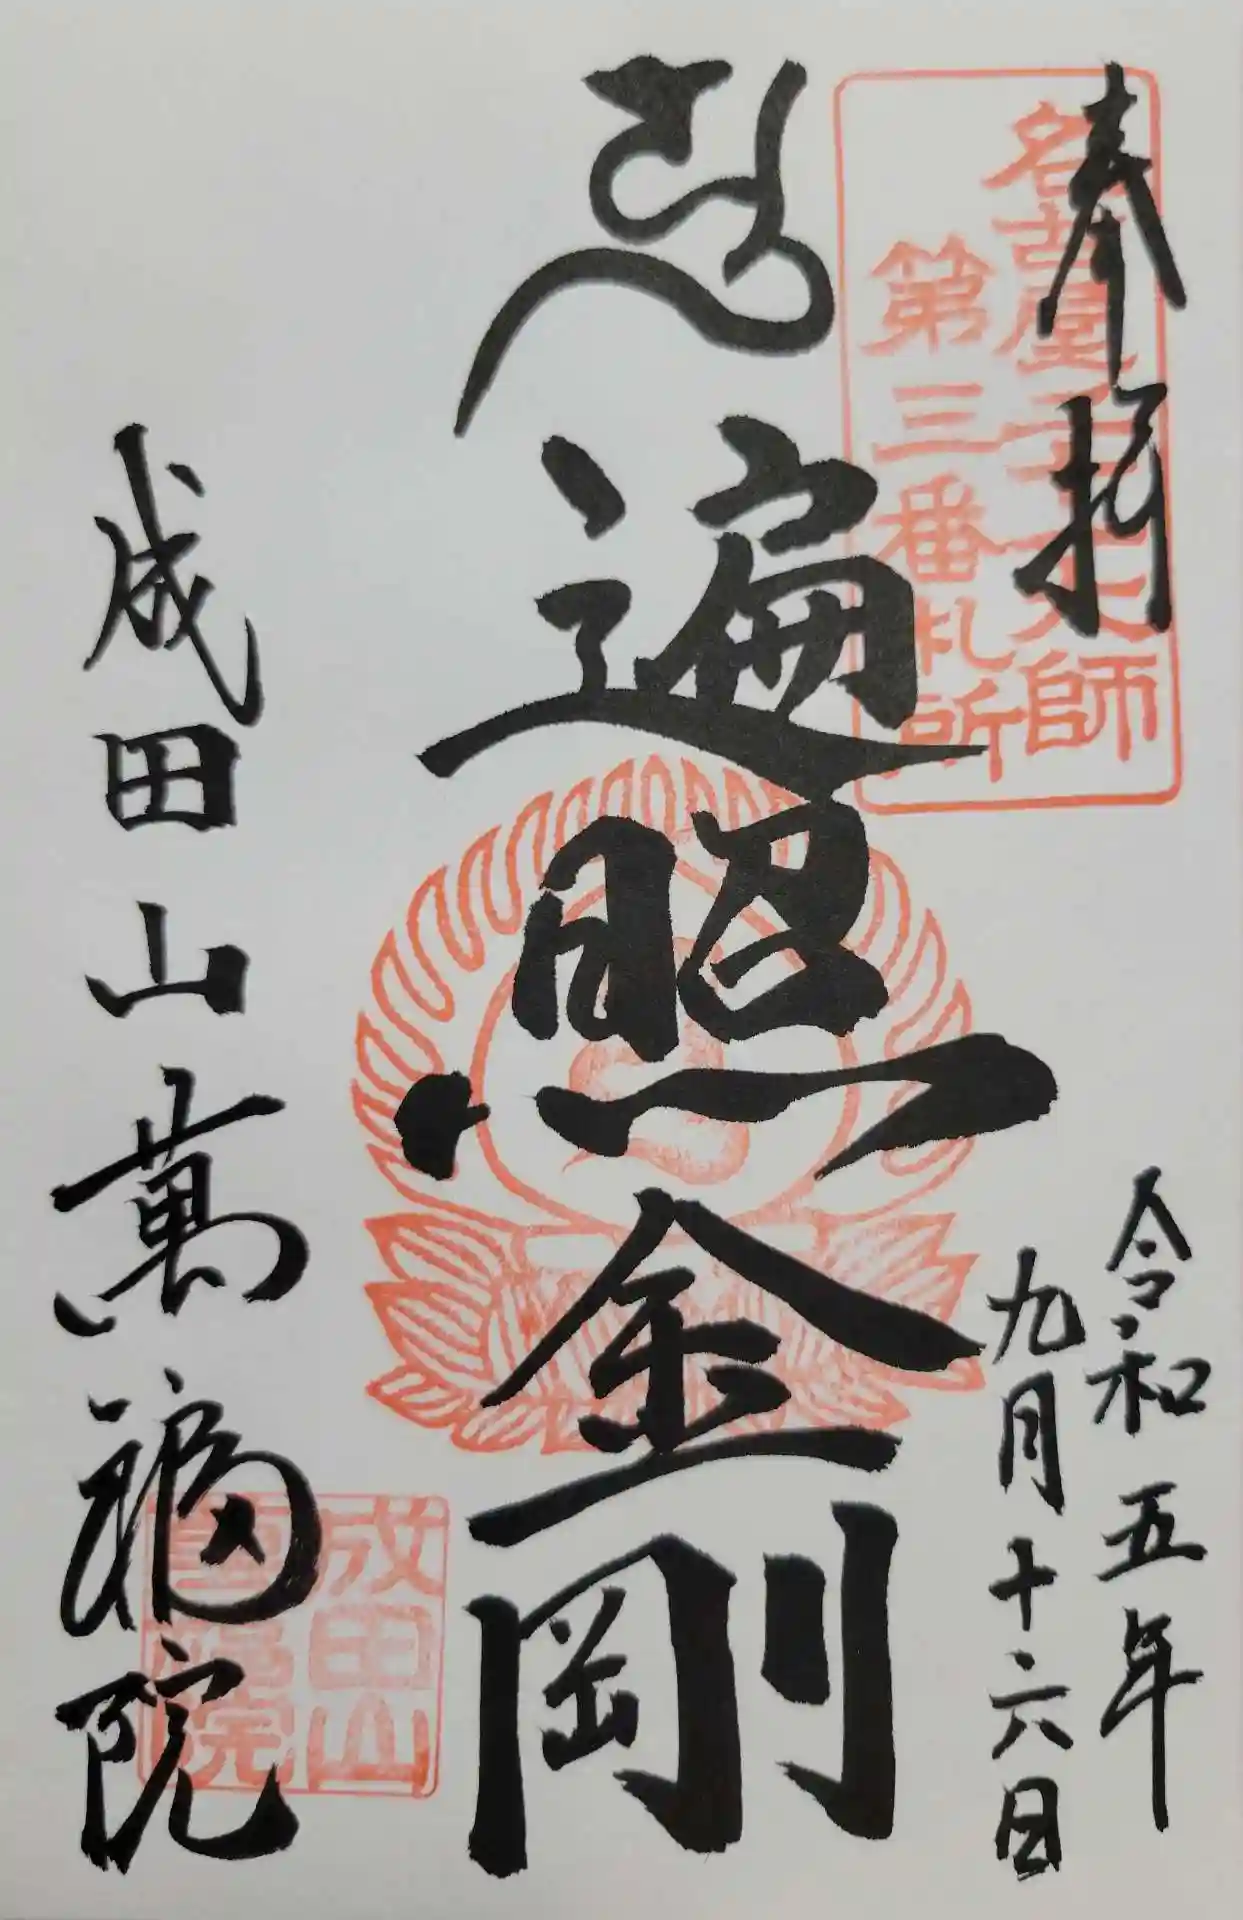 奉拝
名古屋二十一大師
第三番札所
令和五年
九月十六日
遍照金剛
成田山萬福院
成田山
萬福院